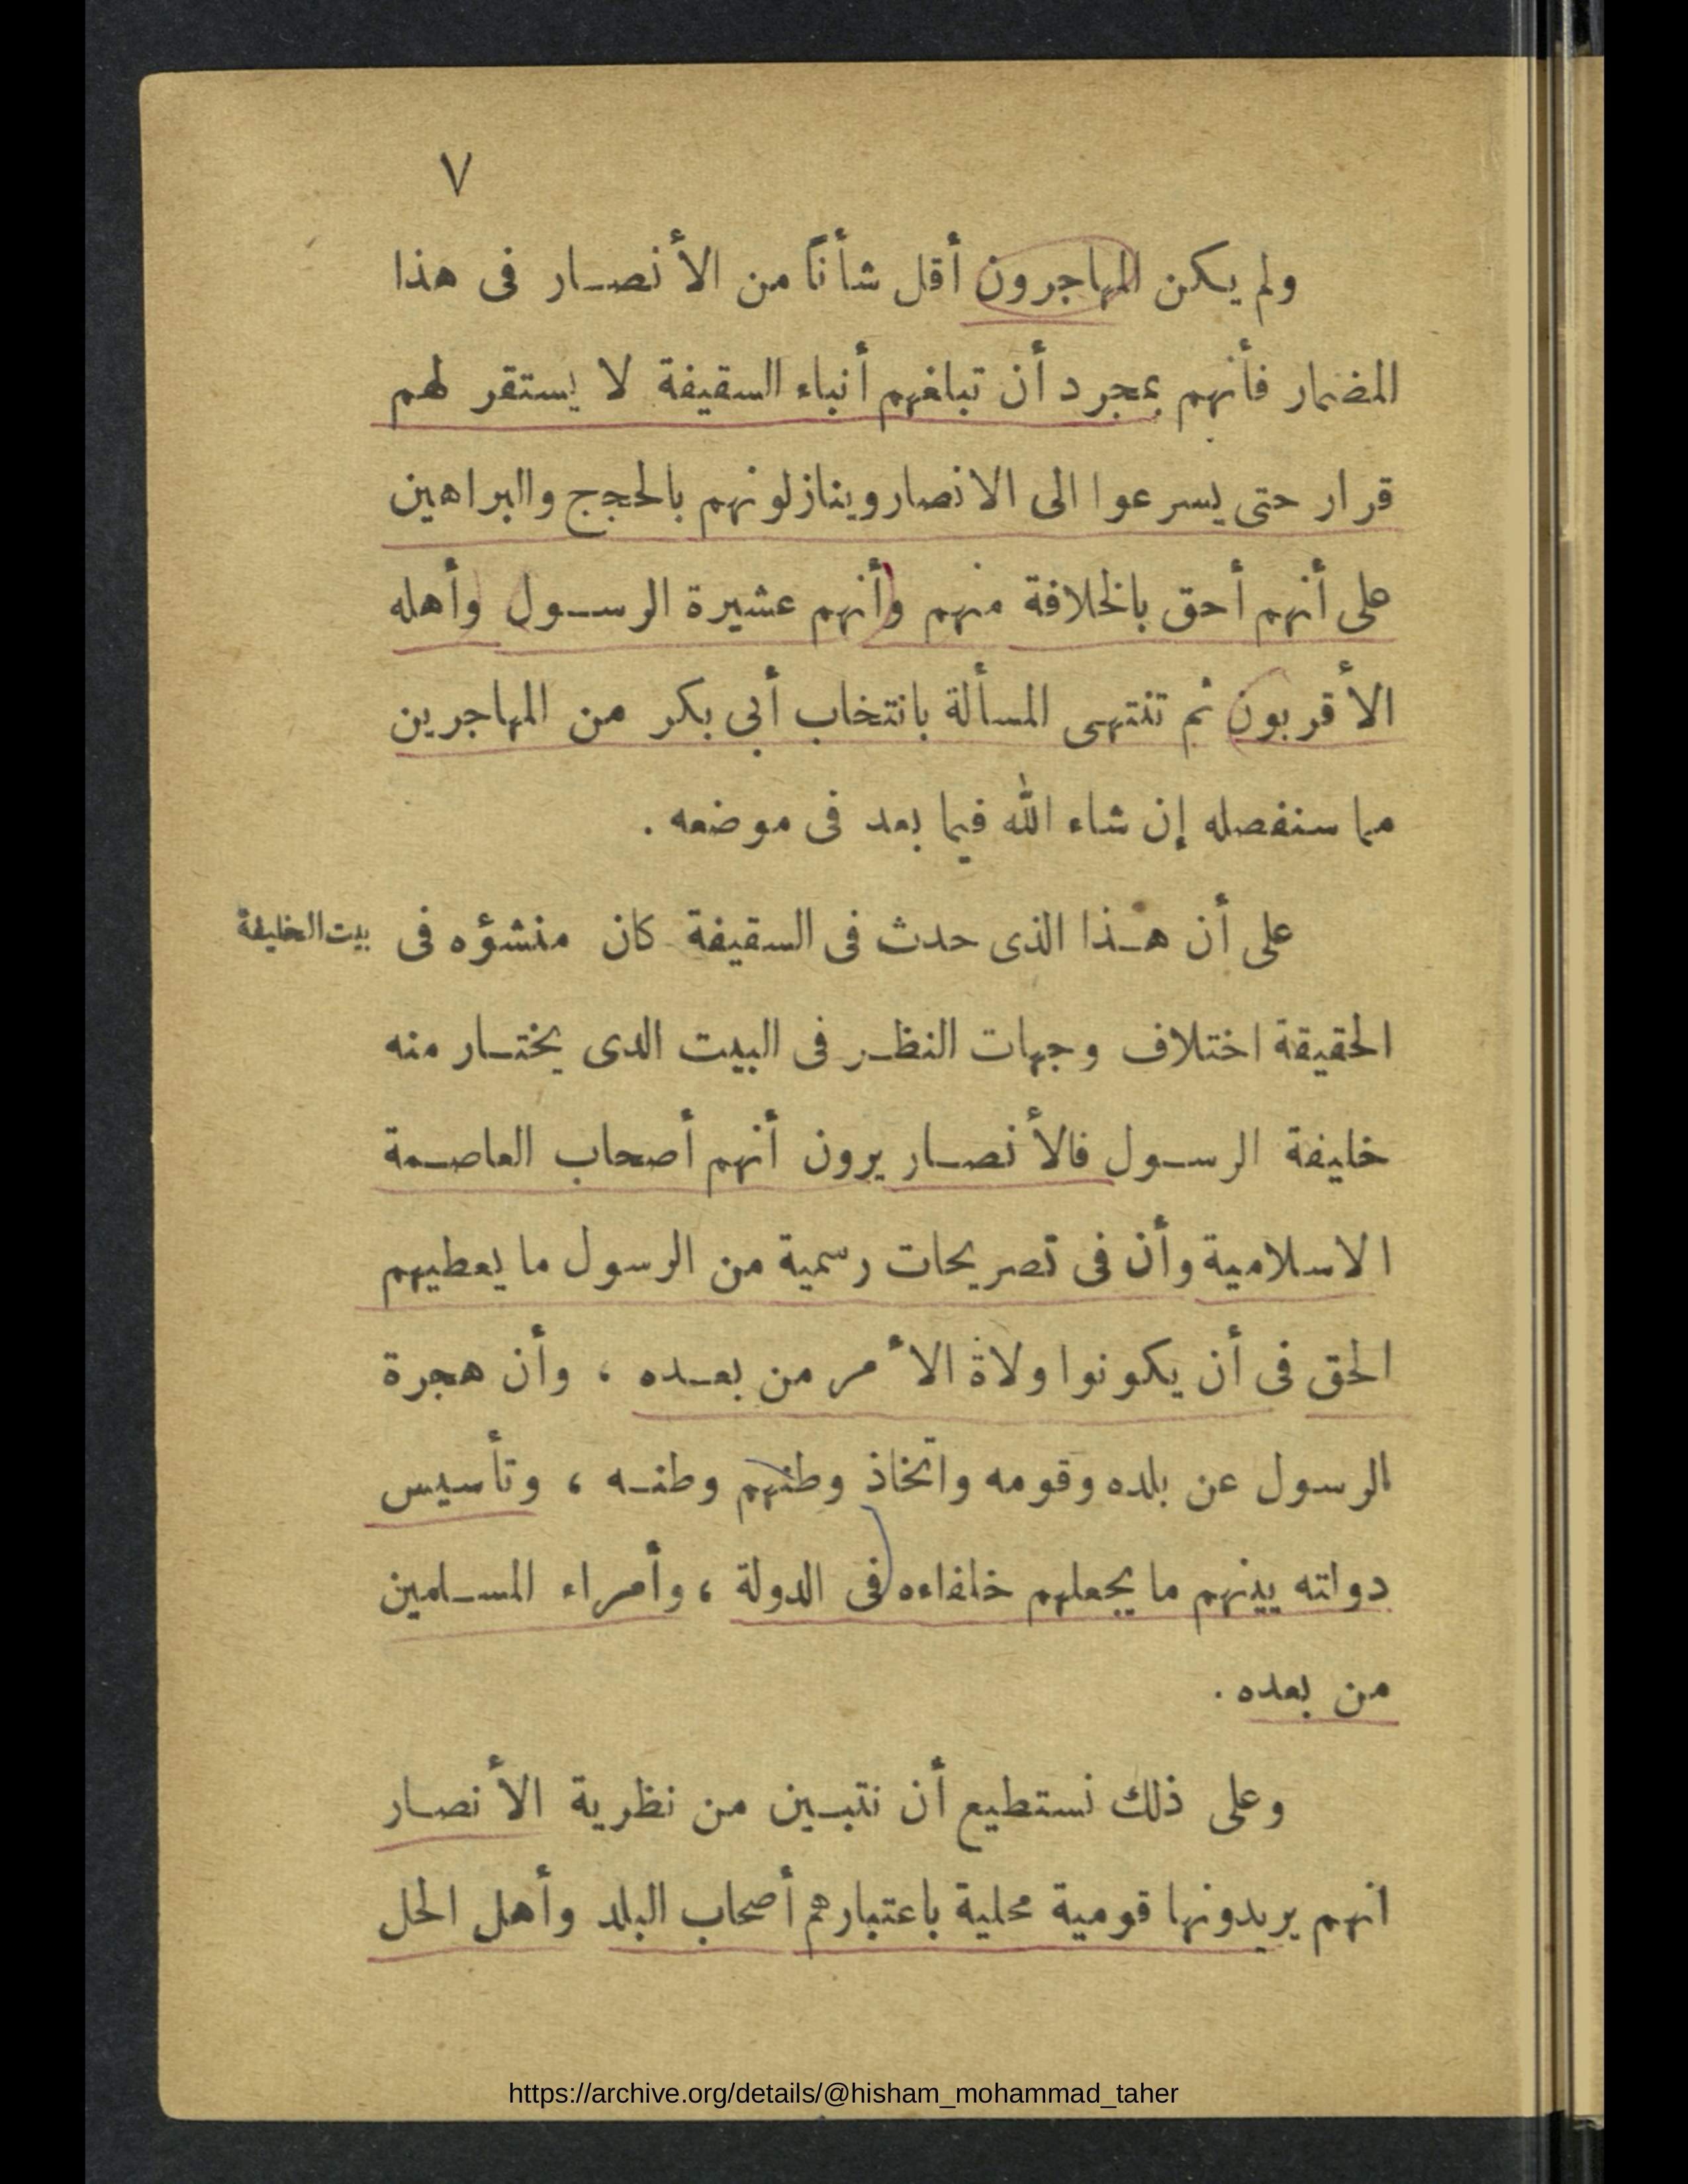 ٧
ولم يكن المهاجرون أقل شأناً من الأنصار فى هذا
المضمار فأنهم بمجرد أن تبلغهم أنباء السقيفة لا يستقر لهم
قرار حتى يسرعوا الى الانصار وينازلونهم بالحجج والبراهين
على أنهم أحق بالخلافة منهم وأنهم عشيرة الرسول وأهله
الأقربون ثم تنتهى المسألة بانتخاب أبى بكر من المهاجرين
مما سنفصله إن شاء الله فيما بعد فى موضعه .
على أن هذا الذى حدث فى السقيفة كان منشؤه فى
بيت الخليفة
الحقيقة اختلاف وجهات النظر فى البيت الدى يختار منه
خليفة الرسول فالأنصار يرون أنهم أصحاب العاصمة
الاسلامية وأن فى تصريحات رسمية من الرسول ما يعطيهم
الحق فى أن يكونوا ولاة الأمر من بعده ، وأن هجرة
الرسول عن بلده وقومه واتخاذ وطنهم وطنه ، وتأسيس
دولته بينهم ما يجعلهم خلفاءه فى الدولة ، وأمراء المسلمين
من بعده .
وعلى ذلك نستطيع أن نتبين من نظرية الأنصار
انهم يريدونها قومية محلية باعتبارهم أصحاب البلد وأهل الحل
https://archive.org/details/@hisham_mohammad_taher